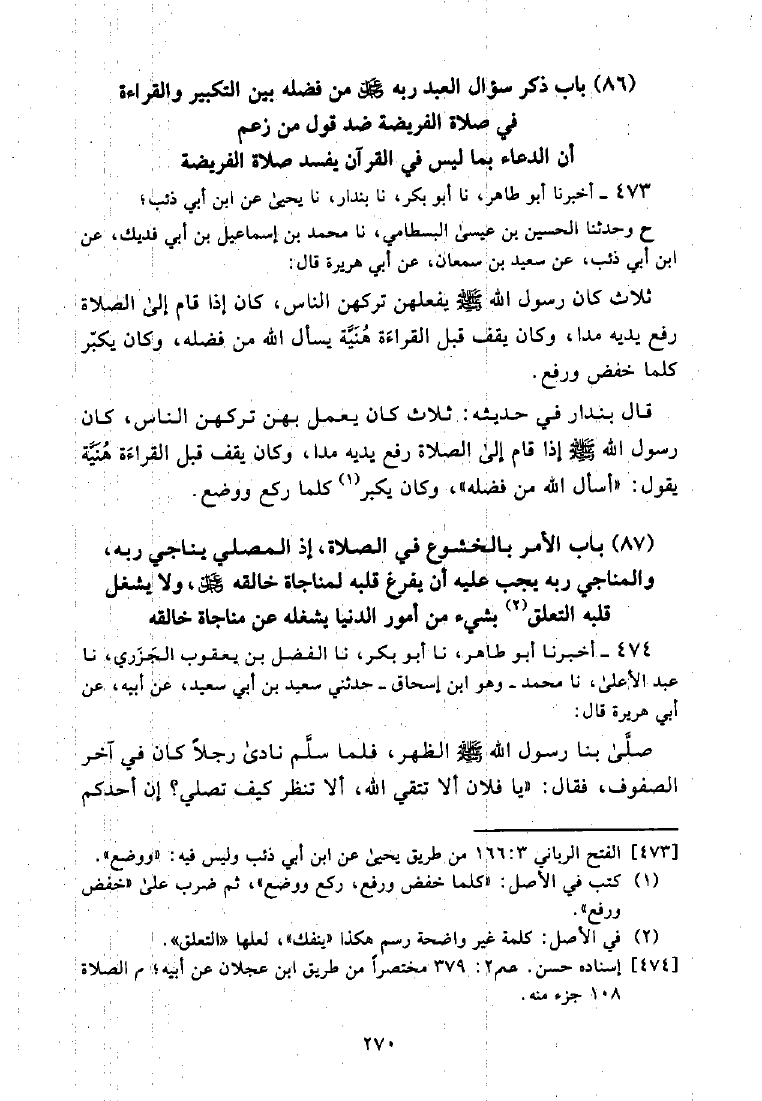 (٨٦) باب ذكر سؤال العبد ربه ﷺ من فضله بين التكبير والقراءة
في صلاة الفريضة ضد قول من زعم
أن الدعاء بما ليس في القرآن يفسد صلاة الفريضة
٤٧٣ ـ أخبرنا أبو طاهر، نا أبو بكر، نا بندار، نا يحيىٰ عن ابن أبي ذئب؛
ح وحدثنا الحسين بن عيسىٰ البسطامي، نا محمد بن إسماعيل بن أبي فديك، عن
ابن أبي ذئب، عن سعيد بن سمعان، عن أبي هريرة قال:
ثلاث كان رسول الله ﷺ يفعلهن تركهن الناس، كان إذا قام إلىٰ الصلاة
رفع يديه مدا، وكان يقف قبل القراءة هُنَيَّة يسأل الله من فضله، وكان يكبّر
كلما خفض ورفع.
قال بندار في حديثه: ثلاث كان يعمل بهن تركهن الناس، كان
رسول الله ﷺ إذا قام إلىٰ الصلاة رفع يديه مدا، وكان يقف قبل القراءة هُنَيَّة
يقول: «أسأل الله من فضله»، وكان يكبر(١) كلما ركع ووضع.
(٨٧) باب الأمر بالخشوع في الصلاة، إذ المصلي يناجي ربه،
والمناجي ربه يجب عليه أن يفرغ قلبه لمناجاة خالقه ﷺ، ولا يشغل
قلبه التعلق(٢) بشيء من أمور الدنيا يشغله عن مناجاة خالقه
٤٧٤ ـ أخبرنا أبو طاهر، نا أبو بكر، نا الفضل بن يعقوب الجَزَري، نا
عبد الأعلىٰ، نا محمد ـ وهو ابن إسحاق ـ حدثني سعيد بن أبي سعيد، عن أبيه، عن
أبي هريرة قال:
صلَّىٰ بنا رسول الله ﷺ الظهر، فلما سلَّم نادىٰ رجلاً كان في آخر
الصفوف، فقال: «يا فلان ألا تتقي الله، ألا تنظر كيف تصلي؟ إن أحدكم
[٤٧٣] الفتح الرباني ٣: ١٦٦ من طريق يحيىٰ عن ابن أبي ذئب وليس فيه: «ووضع».
(١) كتب في الأصل: «كلما خفض ورفع، ركع ووضع»، ثم ضرب علىٰ «خفض
ورفع».
(٢) في الأصل: كلمة غير واضحة رسم هكذا «ينفك»، لعلها «التعلق».
[٤٧٤] إسناده حسن. عم٢: ٣٧٩ مختصراً من طريق ابن عجلان عن أبيه؛ م الصلاة
١٠٨ جزء منه.
٢٧٠